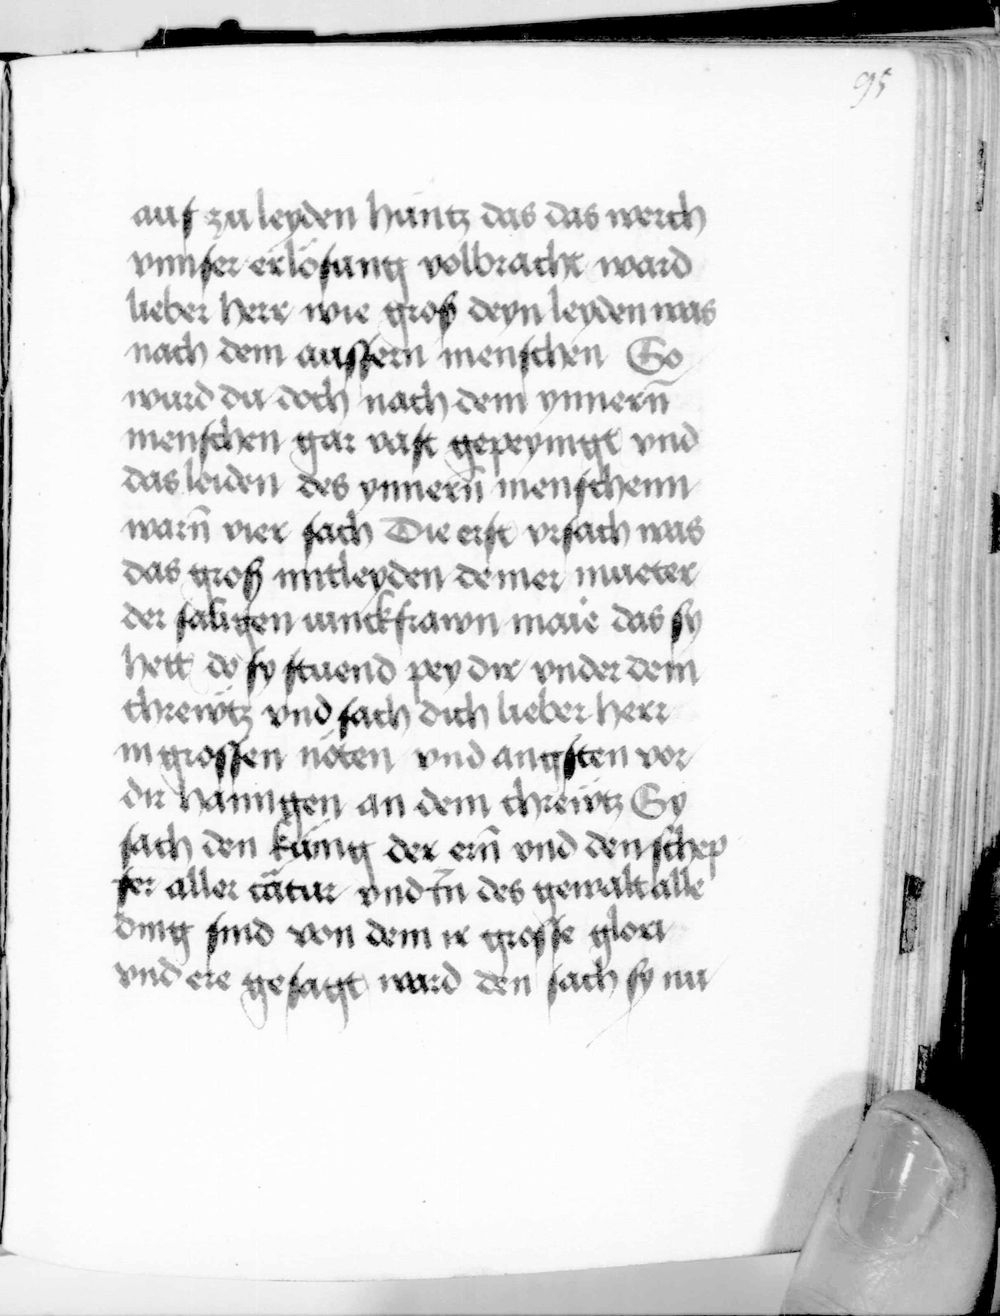 95
auf zu leyden huntz das das werch
vnnser erlösung volbracht ward
lieber herr wie groß deyn leyden was
nach dem aussern menschen So
wurd du doch nach dem ynnern̄
menschen gar vast gepeynigt vnd
das leiden des ynnern̄ menschenn
warn̄ vier sach Die erst vrsach was
das groß mitleyden deiner mueter
der saligen iunckfrawn maie das sy
hett do sy stuend pey dir vnder dem
chrewtz vnd sach dich lieber herr
in grossen nöten vnd angsten vor
dir hanngen an dem chrewtz Sy
sach den kunig der ern̄ vnd den schep
fer aller cātur vnd des gewalt alle
ding sind von dem ir grosse glori
vnd ere gesagt ward den sach sy nu